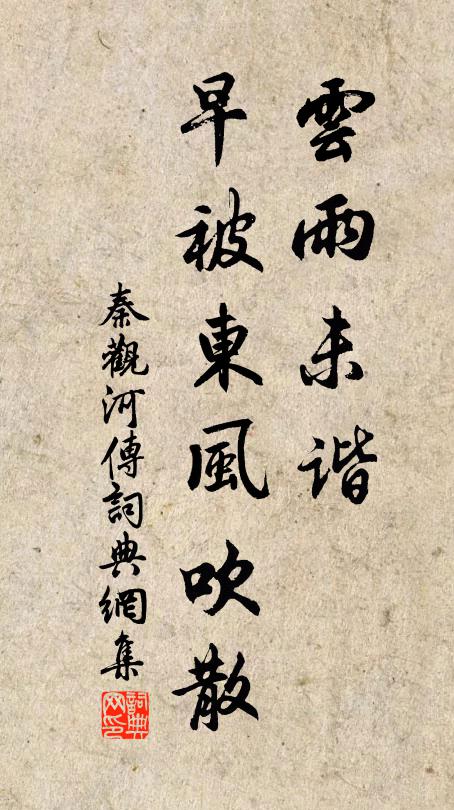 雲雨未谐
早被東風吹散
秦觀河傳詞典網集
詞典
网印